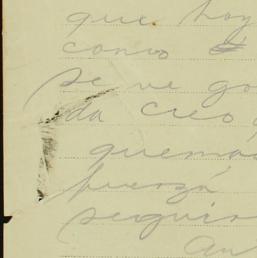 que hoy
como
se ve go
da creo
quema
fuerza
seguir
au